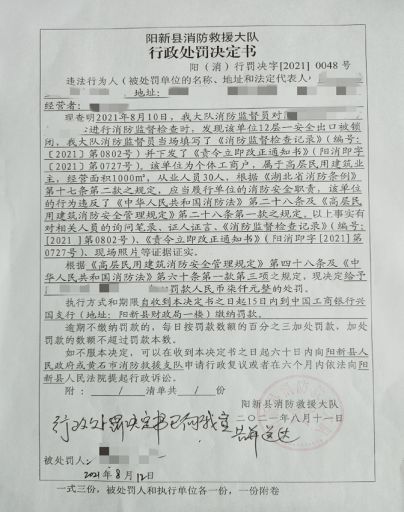 阳新县消防救援大队
行政处罚决定书
阳（消）行罚决字[2021] 0048 号
违法行为人（被处罚单位的名称、地址和法定代表人）
地址：
经营者：
现查明2021年8月10日，我大队消防监督员对
进行消防监督检查时，发现该单位12层一安全出口被锁
闭，我大队消防监督员当场填写了《消防监督检查记录》（编号：
[2021]第0802号）并下发了《责令立即改正通知书》（阳消即字
[2021]第0727号），该单位为个体工商户，属于高层民用建筑业
主，经营面积1000㎡，从业人员30人，根据《湖北省消防条例》
第十七条第二款之规定，应当履行单位的消防安全职责，该单位
的行为违反了《中华人民共和国消防法》第二十八条及《高层民
用建筑消防安全管理规定》第二十八条第一款之规定，以上事实有
对相关人员的询问笔录、证人证言、《消防监督检查记录》（编号：
[2021]第0802号）、《责令立即改正通知书》（阳消即字[2021]第
0727号）、现场照片等证据证实。
根据《高层民用建筑消防安全管理规定》第四十八条及《中
华人民共和国消防法》第六十条第一款第三项之规定，现决定给予
罚款人民币柒仟元整的处罚。
执行方式和期限自收到本决定书之日起15日内到中国工商银行兴
国支行（地址：阳新县财政局一楼）缴纳罚款。
逾期不缴纳罚款的，每日按罚款数额的百分之三加处罚款，加处
罚款的数额不超过罚款本数。
如不服本决定，可以在收到本决定书之日起六十日内向阳新县人
民政府或黄石市消防救援支队申请行政复议或者在六个月内依法向阳
新县人民法院提起行政诉讼。
附： / 清单共 / 份
阳新县消防救援大队
二〇二一年八月十一日
行政处罚决定书已向我宣
告并送达
被处罚人：
2021年8月12日
一式三份，被处罚人和执行单位各一份，一份附卷